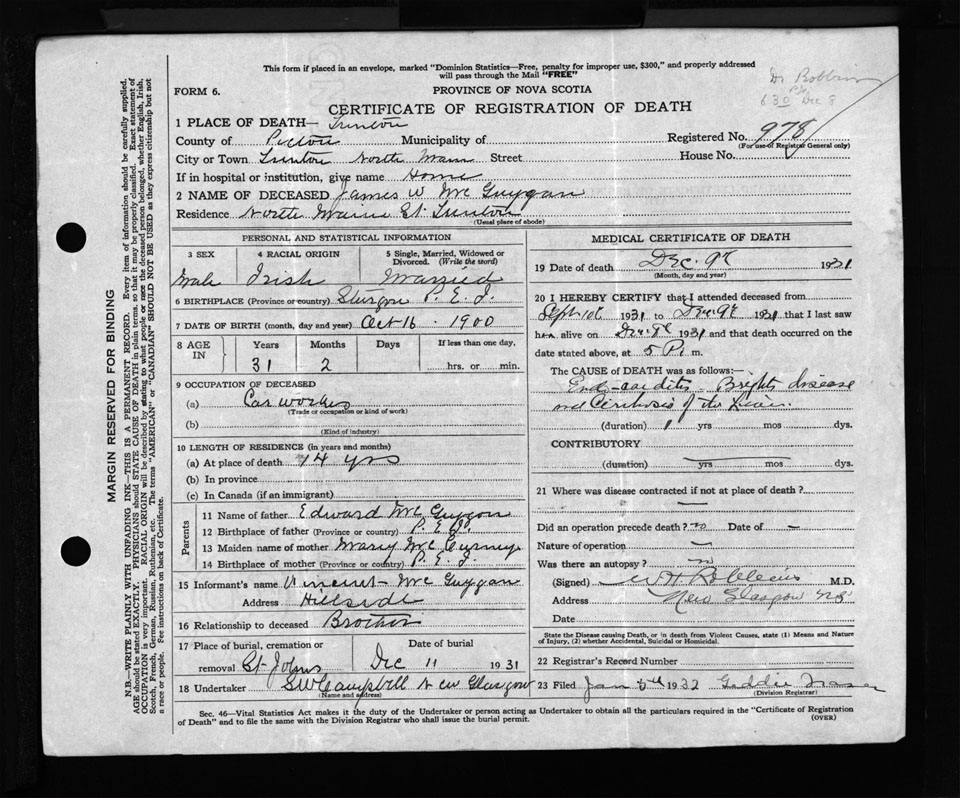 This form if placed in an envelope, marked "Dominion Statistics—Free, penalty for improper use, $300," and properly addressed
will pass through the Mail "FREE"
Dr Robbins
630 Dec 8
FORM 6.
PROVINCE OF NOVA SCOTIA
CERTIFICATE OF REGISTRATION OF DEATH
1 PLACE OF DEATH— Trenton
Registered No. 978
(For use of Registrar General only)
County of Pictou Municipality of
City or Town Trenton North Main Street House No.
If in hospital or institution, give name Home
2 NAME OF DECEASED James W McGuygan
Residence North Main St. Trenton
(Usual place of abode)
PERSONAL AND STATISTICAL INFORMATION
3 SEX 4 RACIAL ORIGIN 5 Single, Married, Widowed or Divorced. (Write the word)
Male Irish Married
6 BIRTHPLACE (Province or country) P.E.I.
7 DATE OF BIRTH (month, day and year) Oct 16 - 1900
8 AGE IN Years Months Days If less than one day,
31 2 hrs. or min.
9 OCCUPATION OF DECEASED
(a) Car worker
(Trade or occupation or kind of work)
(b)
(Kind of industry)
10 LENGTH OF RESIDENCE (in years and months)
(a) At place of death 14 yrs
(b) In province
(c) In Canada (if an immigrant)
Parents
11 Name of father Edward McGuygan
12 Birthplace of father (Province or country) P.E.I.
13 Maiden name of mother Mary
14 Birthplace of mother (Province or country) P.E.I.
15 Informant's name Vincent McGuygan
Address Hillside
16 Relationship to deceased Brother
17 Place of burial, cremation or removal St Johns Date of burial Dec 11 1931
18 Undertaker S W Campbell New Glasgow
(Name and address)
MEDICAL CERTIFICATE OF DEATH
19 Date of death Dec. 9th 1931
(Month, day and year)
20 I HEREBY CERTIFY that I attended deceased from
Sept 1931 to Dec 9th 1931 that I last saw
him alive on Dec 9th 1931 and that death occurred on the
date stated above, at 5 P. m.
The CAUSE of DEATH was as follows:—
Endocarditis - Brights disease
and Cirrhosis of the
(duration) 1 yrs mos. dys.
CONTRIBUTORY
(duration) yrs mos. dys.
21 Where was disease contracted if not at place of death?
—
Did an operation precede death? no Date of —
Nature of operation —
Was there an autopsy? no
(Signed) W H Robbins M.D.
Address New Glasgow NS
Date
State the Disease causing Death, or in death from Violent Causes, state (1) Means and Nature
of Injury, (2) whether Accidental, Suicidal or Homicidal.
22 Registrar's Record Number
23 Filed Jan 1932 Geddie Fraser
(Division Registrar)
Sec. 46—Vital Statistics Act makes it the duty of the Undertaker or person acting as Undertaker to obtain all the particulars required in the "Certificate of Registration
of Death" and to file the same with the Division Registrar who shall issue the burial permit. (OVER)
MARGIN RESERVED FOR BINDING
N.B.—WRITE PLAINLY WITH UNFADING INK—THIS IS A PERMANENT RECORD. Every item of information should be carefully supplied.
AGE should be stated EXACTLY. PHYSICIANS should STATE CAUSE OF DEATH in plain terms, so that it may be properly classified. Exact statement of
OCCUPATION is very important. RACIAL ORIGIN will be described by stating to what people or race the deceased person belonged, whether English, Irish,
Scotch, French, German, Russian, Ruthenian, etc. The terms "AMERICAN" or "CANADIAN" SHOULD NOT BE USED as they express citizenship but not
a race or people. See instructions on back of Certificate.